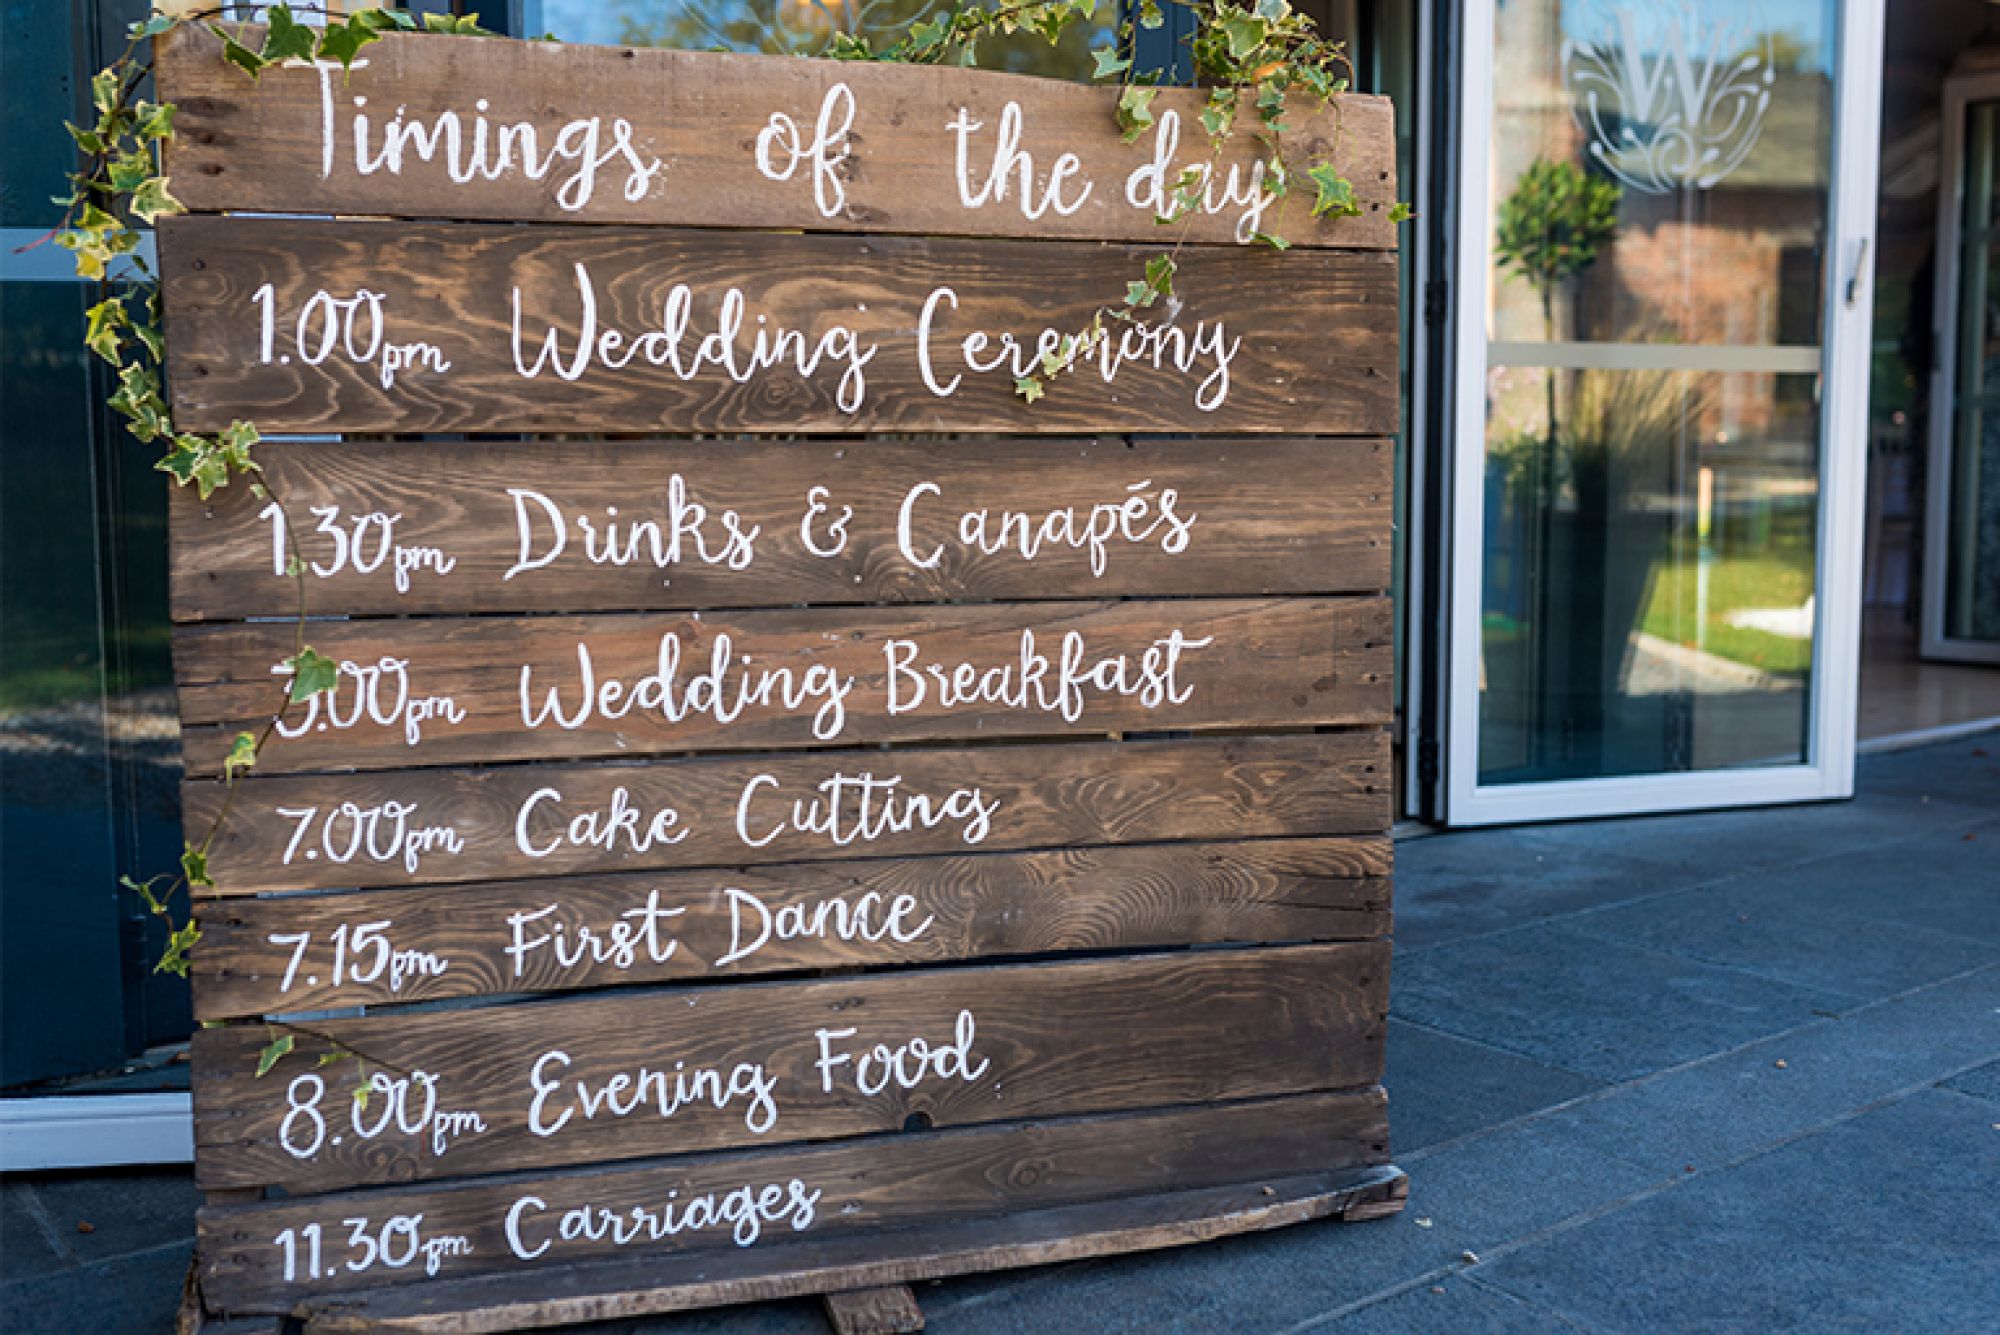 Timings of the day
1.00pm Wedding Ceremony
1.30pm Drinks & Canapés
3.00pm Wedding Breakfast
7.00pm Cake Cutting
7.15pm First Dance
8.00pm Evening Food
11.30pm Carriages
W